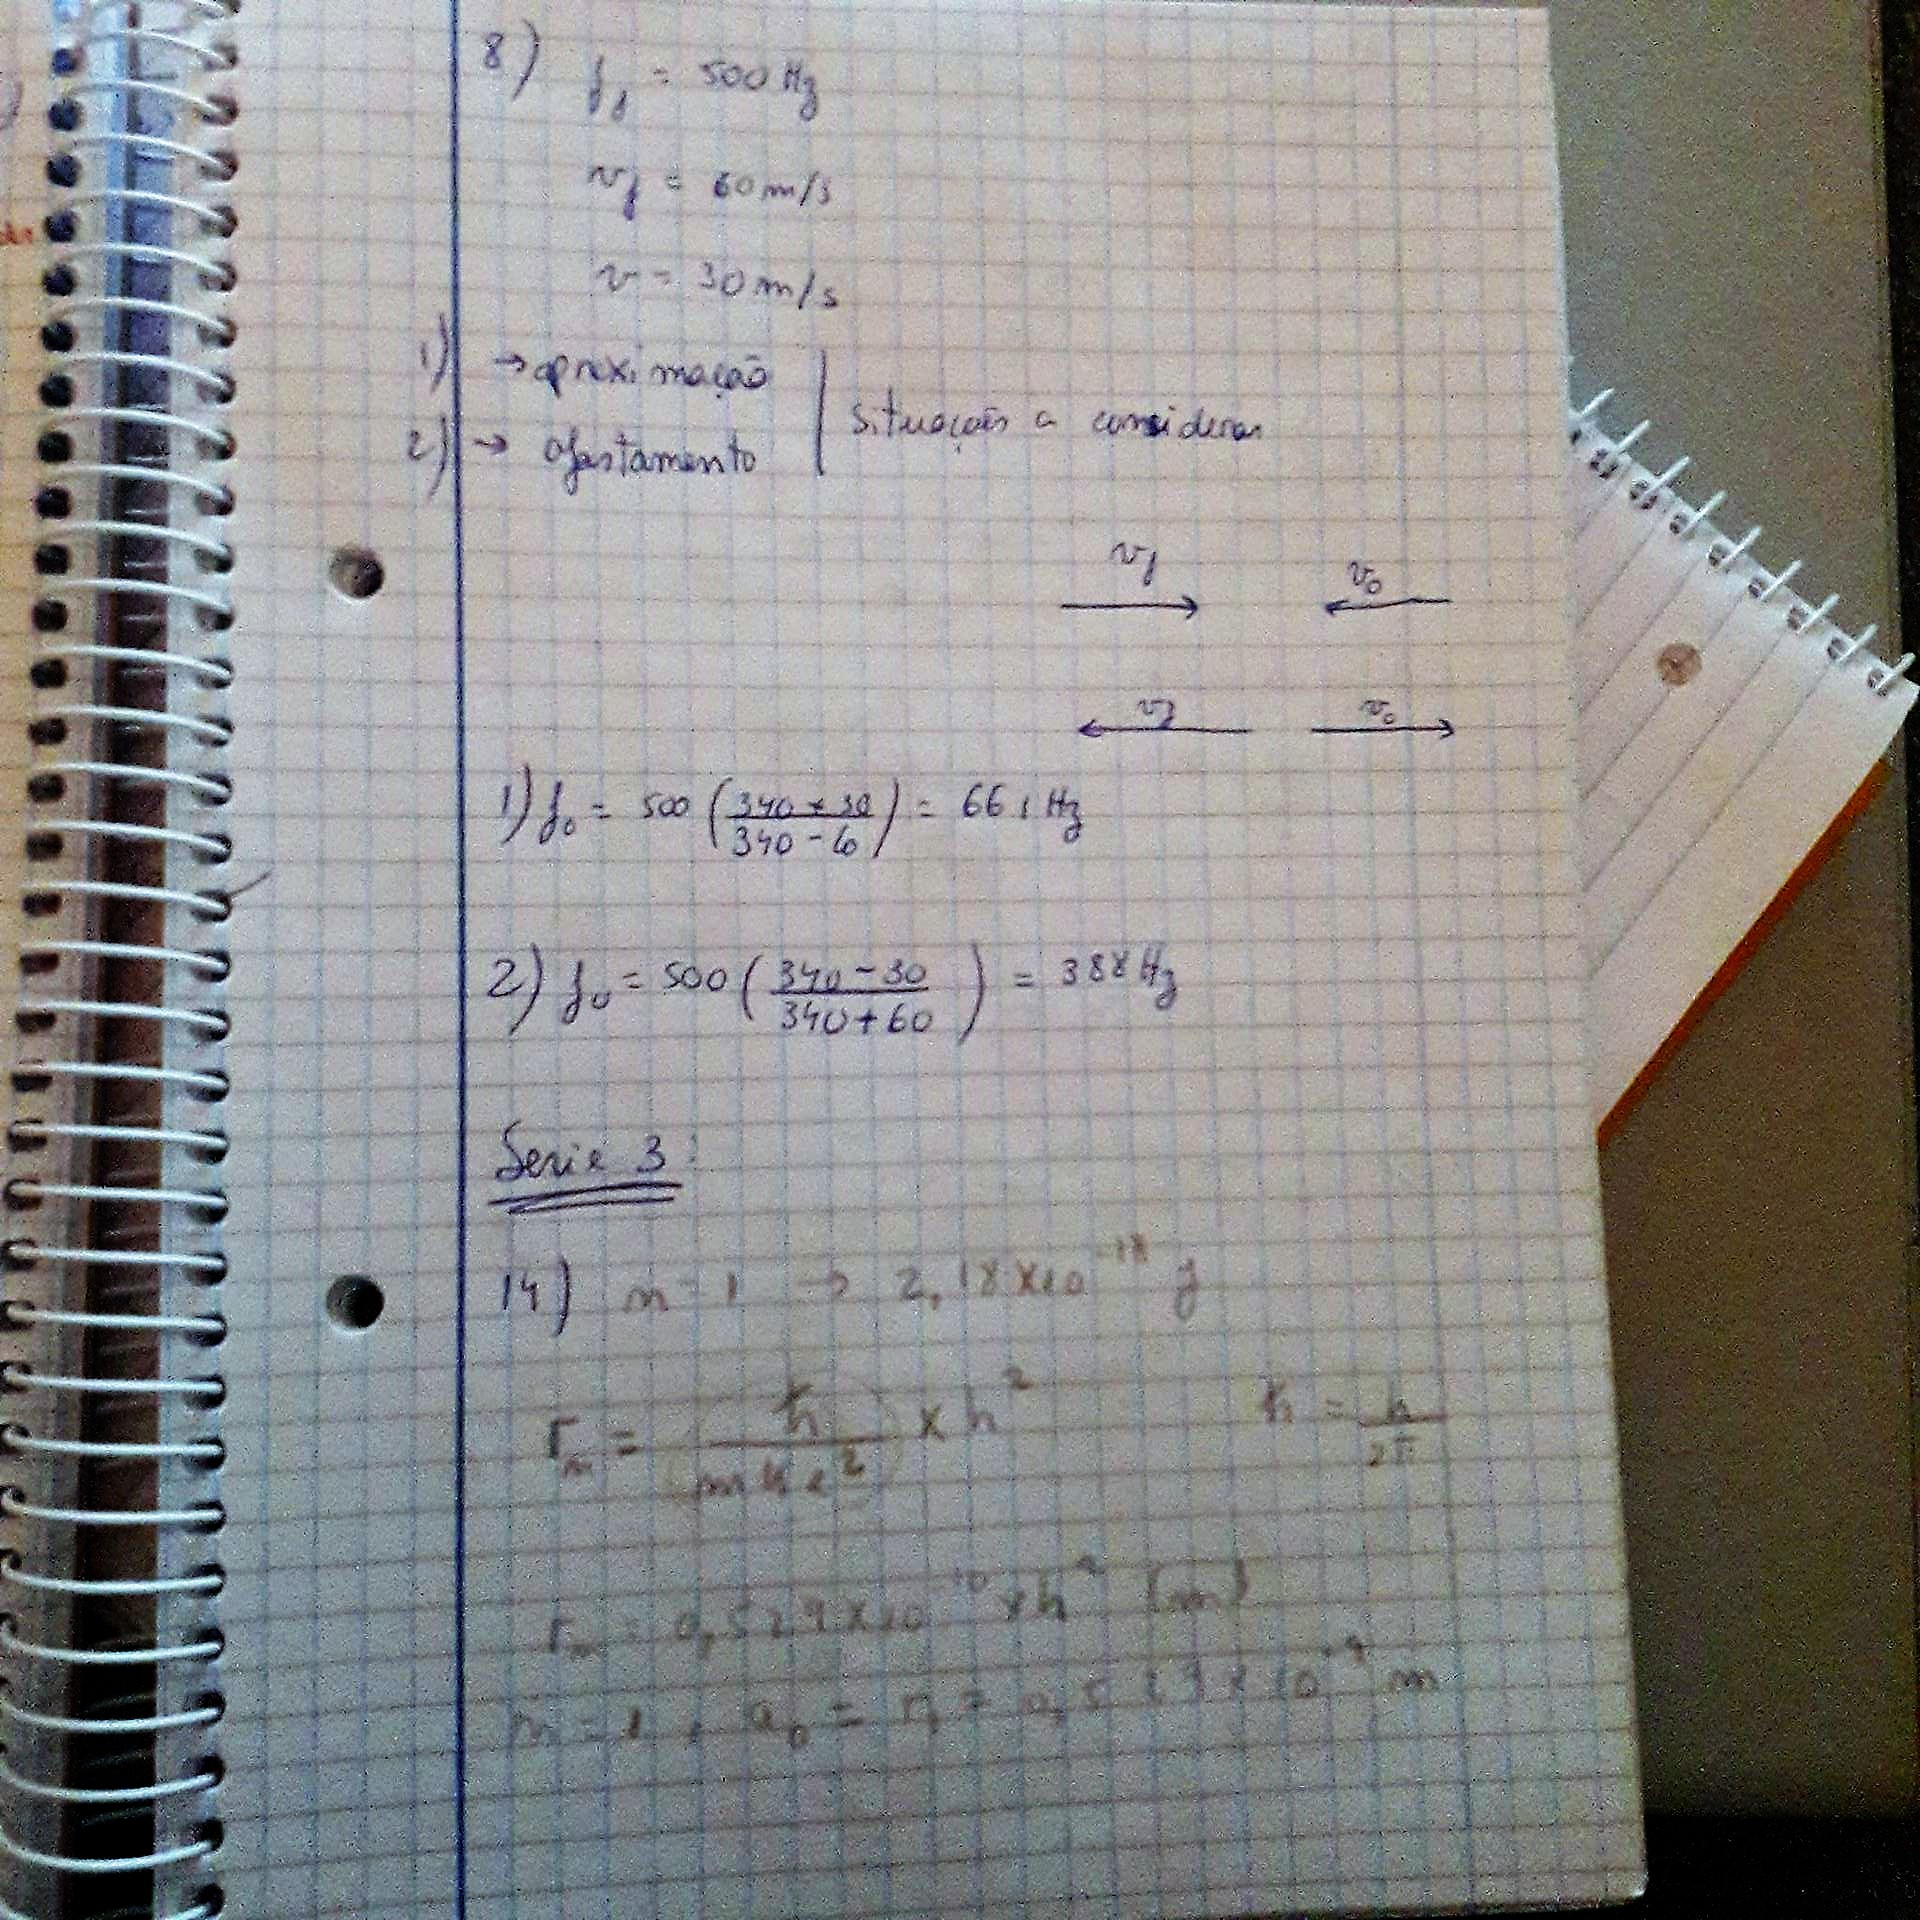 8) ff = 500 Hz
vf = 60 m/s
v = 30 m/s
1) → aproximação
2) → afastamento
situações a considerar
vf v0
vf v0
1) f0 = 500 (340 + 30 / 340 - 60) = 661 Hz
2) f0 = 500 (340 - 30 / 340 + 60) = 388 Hz
Serie 3:
14) n = 1 → 2,18 x 10^-18 J
rn = (ħ / m k e^2) x h^2 ħ = h / 2π
rn = 0,529 x 10^-10 x h^2 (m)
n = 1, a0 = r1 = 0,529 x 10 m